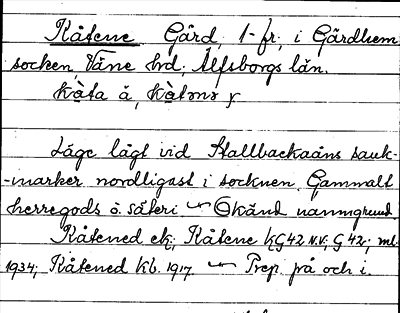 Kåtene Gård, 1 fr, i Gärdhem
socken, Väne hd; Älfsborgs län.
Låge lågt vid Stallbackaåns sank-
-marker nordligast i socknen. Gammalt
herregods o. säteri — Okänd namngrund.
Kåtened ek; Kåtene kG42 N.V.; G42; ml.
1934; Kåtened kb. 1917 — Prep. på och i.